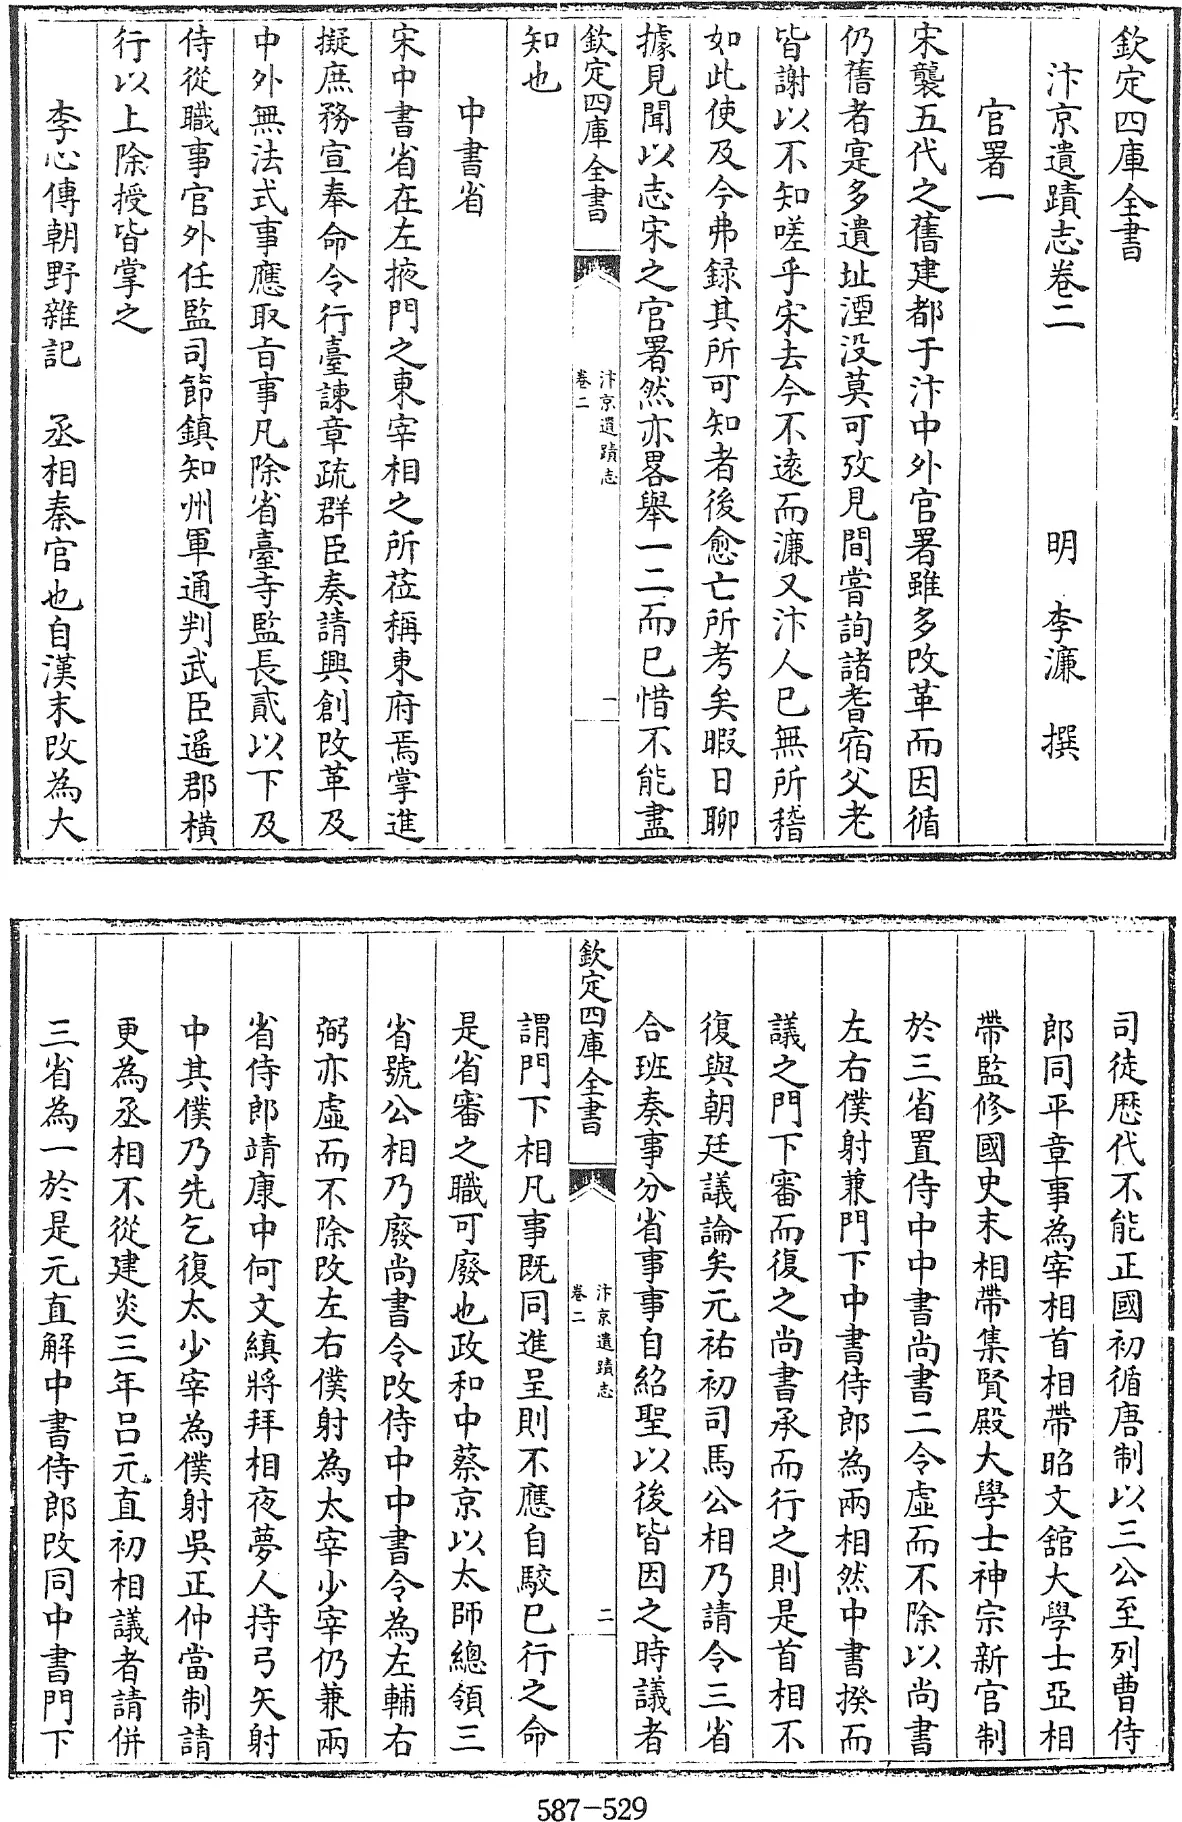 欽定四庫全書
汴京遺蹟志卷二
明 李濂 撰
官署一
宋襲五代之舊建都于汴中外官署雖多改革而因循
仍舊者寔多遺址湮没莫可攷見間嘗詢諸耆宿父老
皆謝以不知嗟乎宋去今不遠而濂又汴人已無所稽
如此使及今弗録其所可知者後愈亡所考矣暇日聊
據見聞以志宋之官署然亦畧舉一二而已惜不能盡
欽定四庫全書
汴京遺蹟志
卷二
一
知也
中書省
宋中書省在左掖門之東宰相之所莅稱東府焉掌進
擬庶務宣奉命令行臺諫章疏群臣奏請興創改革及
中外無法式事應取㫖事凡除省臺寺監長貳以下及
侍從職事官外任監司節鎮知州軍通判武臣遥郡橫
行以上除授皆掌之
李心傳朝野雜記 丞相秦官也自漢末改為大
司徒歴代不能正國初循唐制以三公至列曹侍
郎同平章事為宰相首相帶昭文舘大學士亞相
帶監修國史末相帶集賢殿大學士神宗新官制
於三省置侍中中書尚書二令虛而不除以尚書
左右僕射兼門下中書侍郎為兩相然中書揆而
議之門下審而復之尚書承而行之則是首相不
復與朝廷議論矣元祐初司馬公相乃請令三省
合班奏事分省事事自紹聖以後皆因之時議者
欽定四庫全書
汴京遺蹟志
卷二
二
謂門下相凡事既同進呈則不應自駮已行之命
是省審之職可廢也政和中蔡京以太師總領三
省號公相乃廢尚書令改侍中中書令為左輔右
弼亦虛而不除改左右僕射為太宰少宰仍兼兩
省侍郎靖康中何文縝將拜相夜夢人持弓矢射
中其僕乃先乞復太少宰為僕射吳正仲當制請
更為丞相不從建炎三年吕元直初相議者請併
三省為一於是元直解中書侍郎改同中書門下
587-529